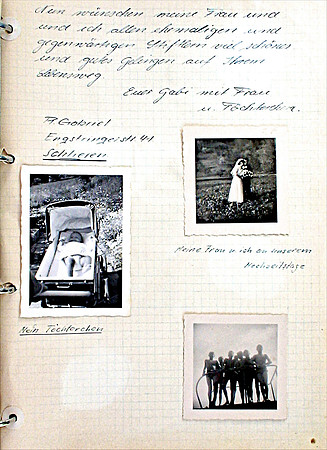 Nun wünschen meine Frau und
und ich allen ehemaligen und
gegenwärtigen Stiftlern viel schönes
und gutes Gelingen auf Ihrem
Lebensweg.
Euer Gabi mit Frau
u. Töchterchen.
Gabriel
Engstringerstr. 41
Schlieren
Meine Frau u ich an unserem
Hochzeitstage
Mein Töchterchen